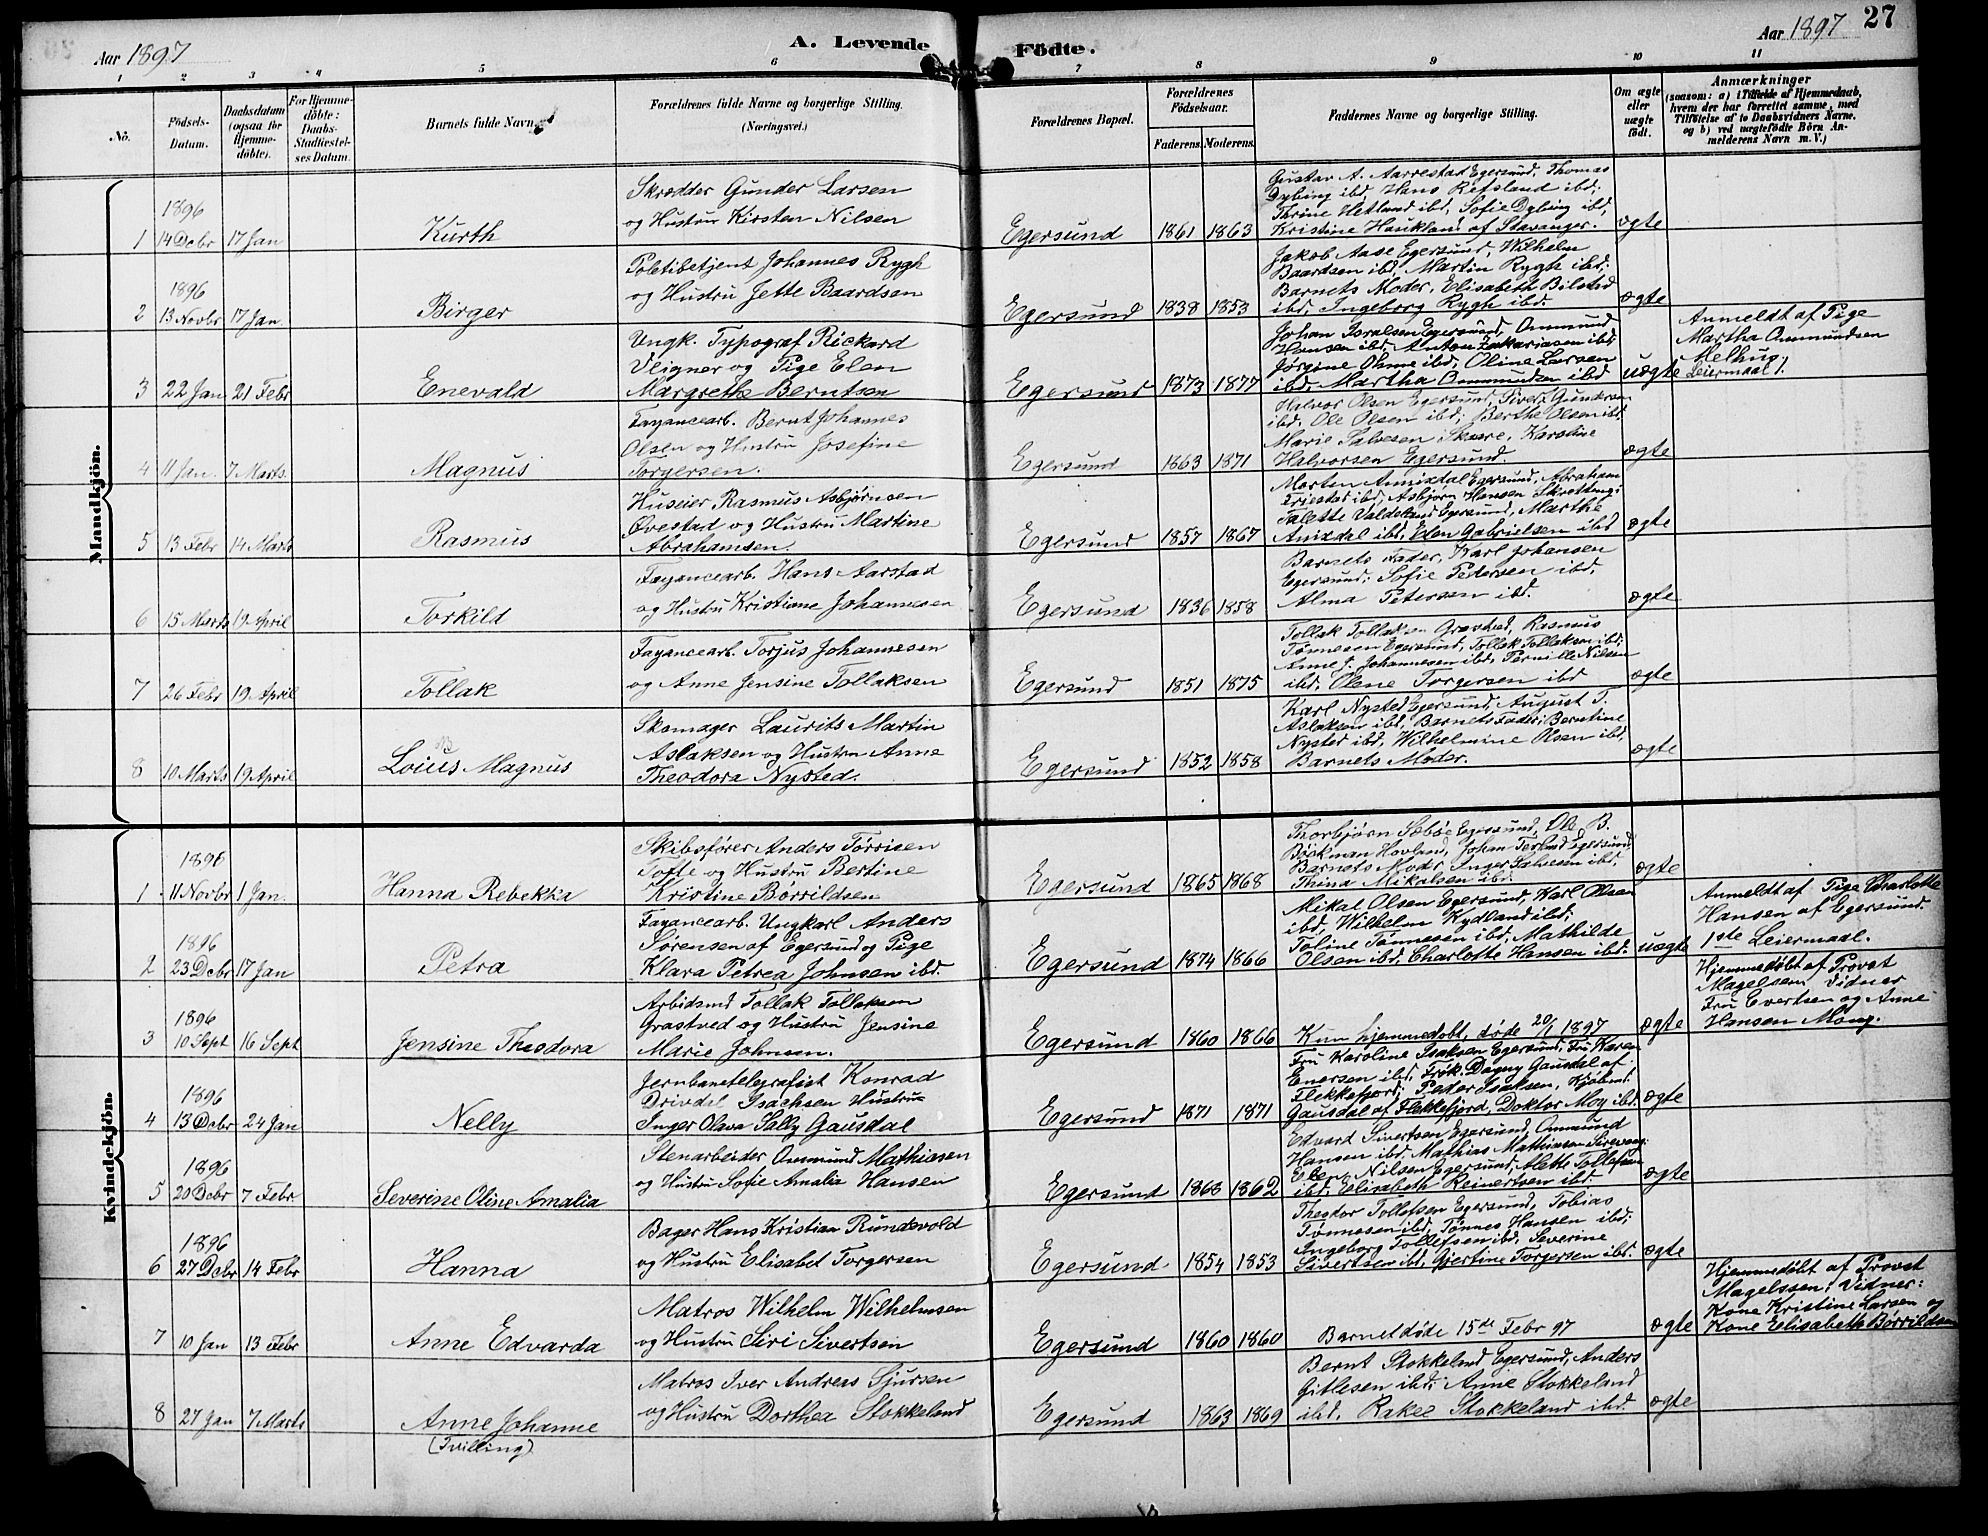 Aar 1897
A. Levende Födte.
Aar 1897
27
1 2 3 4 5 6 7 8 9 10 11
No.
Födsels-
Datum.
Daabsdatum
(ogsaa for
Hjemme-
döbte).
For Hjemme-
döbte:
Daabs-
Stadfæstel-
ses Datum.
Barnets fulde Navn.
Forældrenes fulde Navne og borgerlige Stilling.
(Næringsvei.)
Forældrenes Bopæl.
Forældrenes
Födselsaar.
Faderens. Moderens.
Faddernes Navne og borgerlige Stilling.
Om ægte
eller
uægte
födt.
Anmærkninger
(saasom: a) i Tilfælde af Hjemmedaab,
hvem der har forrettet samme, med
Tilföielse af to Daabsvidners Navne,
og b) ved uægtefödte Börn An-
melderens Navn m. V.)
Mandkjön.
1896
1 14 Debr 17 Jan
Kurth
Skrædder Gunder Larsen
og Hustru Kirsten Nilsen
Egersund 1861 1863
Gustav A. Aarrestad Egersund, Thomas
Dybing ibd, Hans Refsland ibd;
Thrine Hetland ibd, Sofie Dybing ibd,
Kristine Haukland af Stavanger.
ægte
1896
2 13 Novbr 17 Jan.
Birger
Politibetjent Johannes Rygh
og Hustru Jette Baardsen
Egersund 1838 1853
Jakob Aase Egersund, Wilhelm
Baardsen ibd, Martin Rygh ibd;
Barnets Moder, Elisabeth Bilsted
ibd, Ingeborg Rygh ibd.
ægte
3 22 Jan 21 Febr
Enevald
Ungk. Typograf Rickard
Veigner og Pige Elen
Margrethe Berntsen
Egersund 1873 1877
Johan Israelsen Egersund, Ommund
Hansen ibd, Anton Zakariasen ibd;
Jørgine Ohme ibd, Oline Larsen
ibd, Martha Ommundsen ibd
uægte
Anmeldt af Pige
Martha Ommundsen
Melhus,
Leiermaal 1.
4 11 Jan. 7 Marts.
Magnus
Fayancearb. Bernt Johannes
Olsen og Hustru Josefine
Torgersen.
Egersund 1863 1871
Halvor Olsen Egersund, Sivert Gundersen
ibd, Ole Olsen ibd; Berthe Olsen ibd,
Marie Salvesen Skaare, Karoline
Halvorsen Egersund.
ægte
5 13 Febr 14 Marts
Rasmus
Huseier Rasmus Asbjørnsen
Øvestad og Hustru Martine
Abrahamsen.
Egersund 1857 1867
Morten Annixdal Egersund, Abraham
Eriestad ibd, Asbjørn Hansen Skrettingi;
Talette Valdeland Egersund, Marthe
Anixdal ibd, Elen Gabrielsen ibd
ægte
6 15 Marts 19 April
Torkild
Fayancearb. Hans Aarstad
og Hustru Kristiane Johannesen
Egersund 1836 1858
Barnets Fader, Karl Johansen
Egersund; Sofie Pedersen ibd,
Alma Petersen ibd.
ægte
7 26 Febr 19 April
Tollak
Fayancearb. Torjus Johannesen
og Anne Jensine Tollaksen
Egersund 1851 1875
Tollak Tollaksen Grastved, Rasmus
Tønnesen Egersund, Tollak Tollaksen ibd;
Anne J. Johannesen ibd, Pernille Nilsen
ibd, Olene Torgersen ibd
ægte
8 10 Marts 19 April
Loius Magnus
Skomager Laurits Martin
Aslaksen og Hustru Anne
Theodora Nysted.
Egersund 1852 1858
Karl Nysted Egersund, August T.
Aslaksen ibd, Barnets Fader; Berntine
Nysted ibd, Wilhelmine Olsen ibd,
Barnets Moder.
ægte
Kvindekjön.
1896
1 11 Novbr 1 Jan.
Hanna Rebekka
Skibsfører Anders Tørrisen
Tofte og Hustru Bertine
Kristine Børrildsen
Egersund 1865 1868
Thorbjørn Sæbøe Egersund, Ole B.
Bøckman Hovland, Johan Terland Egersund,
Barnets Moder, Inger Salvesen ibd,
Thina Mikalsen ibd.
ægte
1896
2 23 Debr 17 Jan
Petra
Fayancearb. Ungkarl Anders
Sørensen af Egersund og Pige
Klara Petrea Johnsen ibd.
Egersund 1874 1866
Mikal Olsen Egersund, Karl Olsen
ibd, Wilhelm Kydland ibd;
Toline Tønnesen ibd, Mathilde
Olsen ibd, Charlotte Hansen ibd.
uægte
Anmeldt af Pige Charlotte
Hansen af Egersund.
1ste Leiermaal.
1896
3 10 Sept 16 Sept
Jensine Theodora
Arbidsmd Tollak Tollaksen
Grastved og Hustru Jensine
Marie Johnsen.
Egersund 1860 1866
Kun hjemmedøbt, døde 20/1 1897
ægte
Hjemmedøbt af Provst
Magelssen, Vidner
Fru Evertsen og Anne
Hansen Mong.
1896
4 13 Debr 24 Jan
Nelly
Jernbanetelegrafist Konrad
Drivdal Isachsen Hustru
Inger Olava Sally Gausdal
Egersund 1871 1871
Fru Karoline Isaksen Egersund, Fru Karen
Enersen ibd, Frøk. Dagny Gausdal af
Flekkefjord; Peder Isaksen, Kjøbmd.
Gausdal af Flekkefjord, Doktor Moy ibd.
ægte
1896
5 20 Debr 7 Febr
Severine Oline Amalia
Stenarbeider Ommund Mathiasen
og Hustru Sofie Amalia Hansen
Egersund 1868 1862
Edvard Sivertsen Egersund, Ommund
Hansen ibd, Mathias Mathiasen Sirevaag;
Elen Nilsen Egersund, Alette Tollefsen
ibd, Elisabeth Reinertsen ibd
ægte
1896
6 27 Debr 14 Febr
Hanna
Bager Hans Kristian Rundsvold
og Hustru Elisabet Torgersen
Egersund 1854 1853
Theodor Tollefsen Egersund, Tobias
Tønnesen ibd, Tønnes Hansen ibd;
Ingeborg Tollefsen ibd, Severine
Sivertsen ibd, Gjertine Torgersen ibd.
ægte
7 10 Jan 13 Febr
Anne Edvarda
Matros Wilhelm Wilhelmsen
og Hustru Siri Sivertsen
Egersund 1860 1860
Barnet døde 15de Febr 97
ægte
Hjemmedøbt af Provst
Magelssen; Vidner:
Kone Kristine Larsen og
Kone Elisabeth Børrildsen
8 27 Jan 7 Marts
Anne Johanne
(Tvilling)
Matros Iver Andreas Sjursen
og Hustru Dorthea Stokkeland
Egersund 1863 1869
Bernt Stokkeland Egersund, Anders
Gitlesen ibd; Anne Stokkeland
ibd, Rakel Stokkeland ibd.
ægte